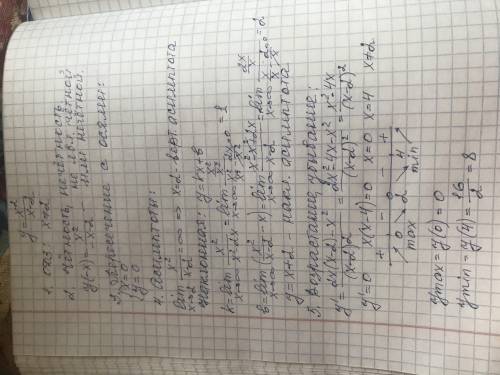 y = x²/(x-2)
1. ОДЗ: x≠2
2. Чётность, нечётность
y(-x) = x²/(-x-2) — не явл. чётной
или нечётной.
3. Пересечение с осями:
{x=0
{y=0
4. Асимптоты:
lim x→2 x²/(x-2) = ∞ ⇒ x=2 - верт. асимптота
наклонная: y=kx+b
k = lim x→∞ x²/(x²-2x) = lim x→∞ (x²/x²)/(x²/x² - 2x/x²→0) = 1
b = lim x→∞ (x²/(x-2) - x) = lim x→∞ (x²-x²+2x)/(x-2) = lim x→∞ (2x/x)/(x/x - 2/x→0) = 2
y = x+2 накл. асимптота
5. Возрастание, убывание:
y' = (2x(x-2)-x²)/(x-2)² = (2x²-4x-x²)/(x-2)² = (x²-4x)/(x-2)²
y'=0 x(x-4)=0 x=0 x=4 x≠2
+ - - +
0 2 4
max min
ymax = y(0) = 0
ymin = y(4) = 16/2 = 8